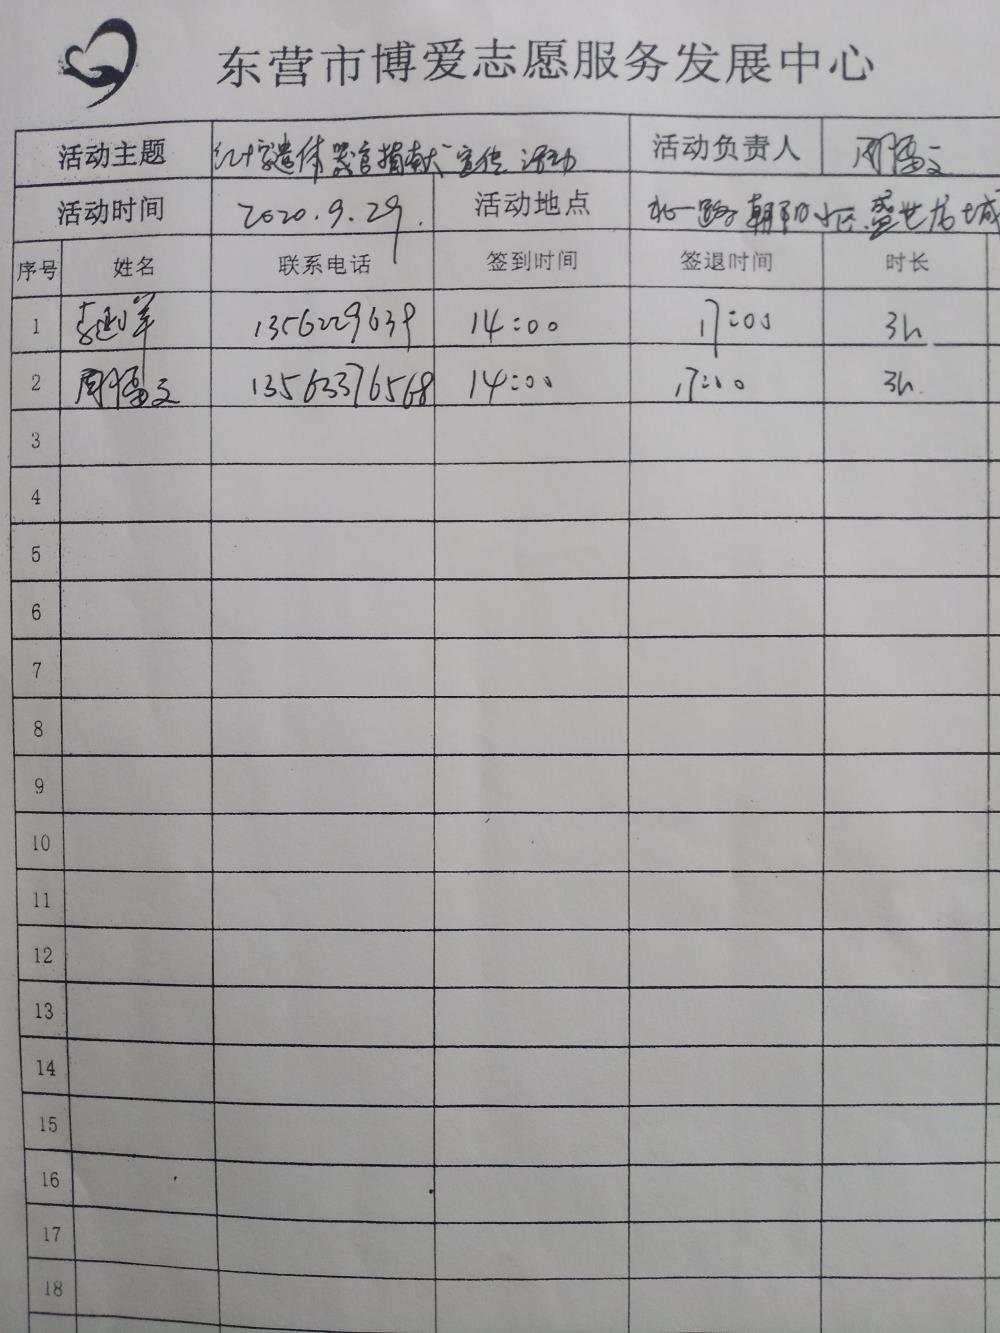 东营市博爱志愿服务发展中心
活动主题 红十字遗体器官捐献宣传活动 活动负责人 周福文
活动时间 2020.9.29. 活动地点 北一路朝阳小区.盛世龙城
序号 姓名 联系电话 签到时间 签退时间 时长
1 14:00 17:00 3h
2 周福文 13563376568 14:00 17:00 3h
3
4
5
6
7
8
9
10
11
12
13
14
15
16
17
18